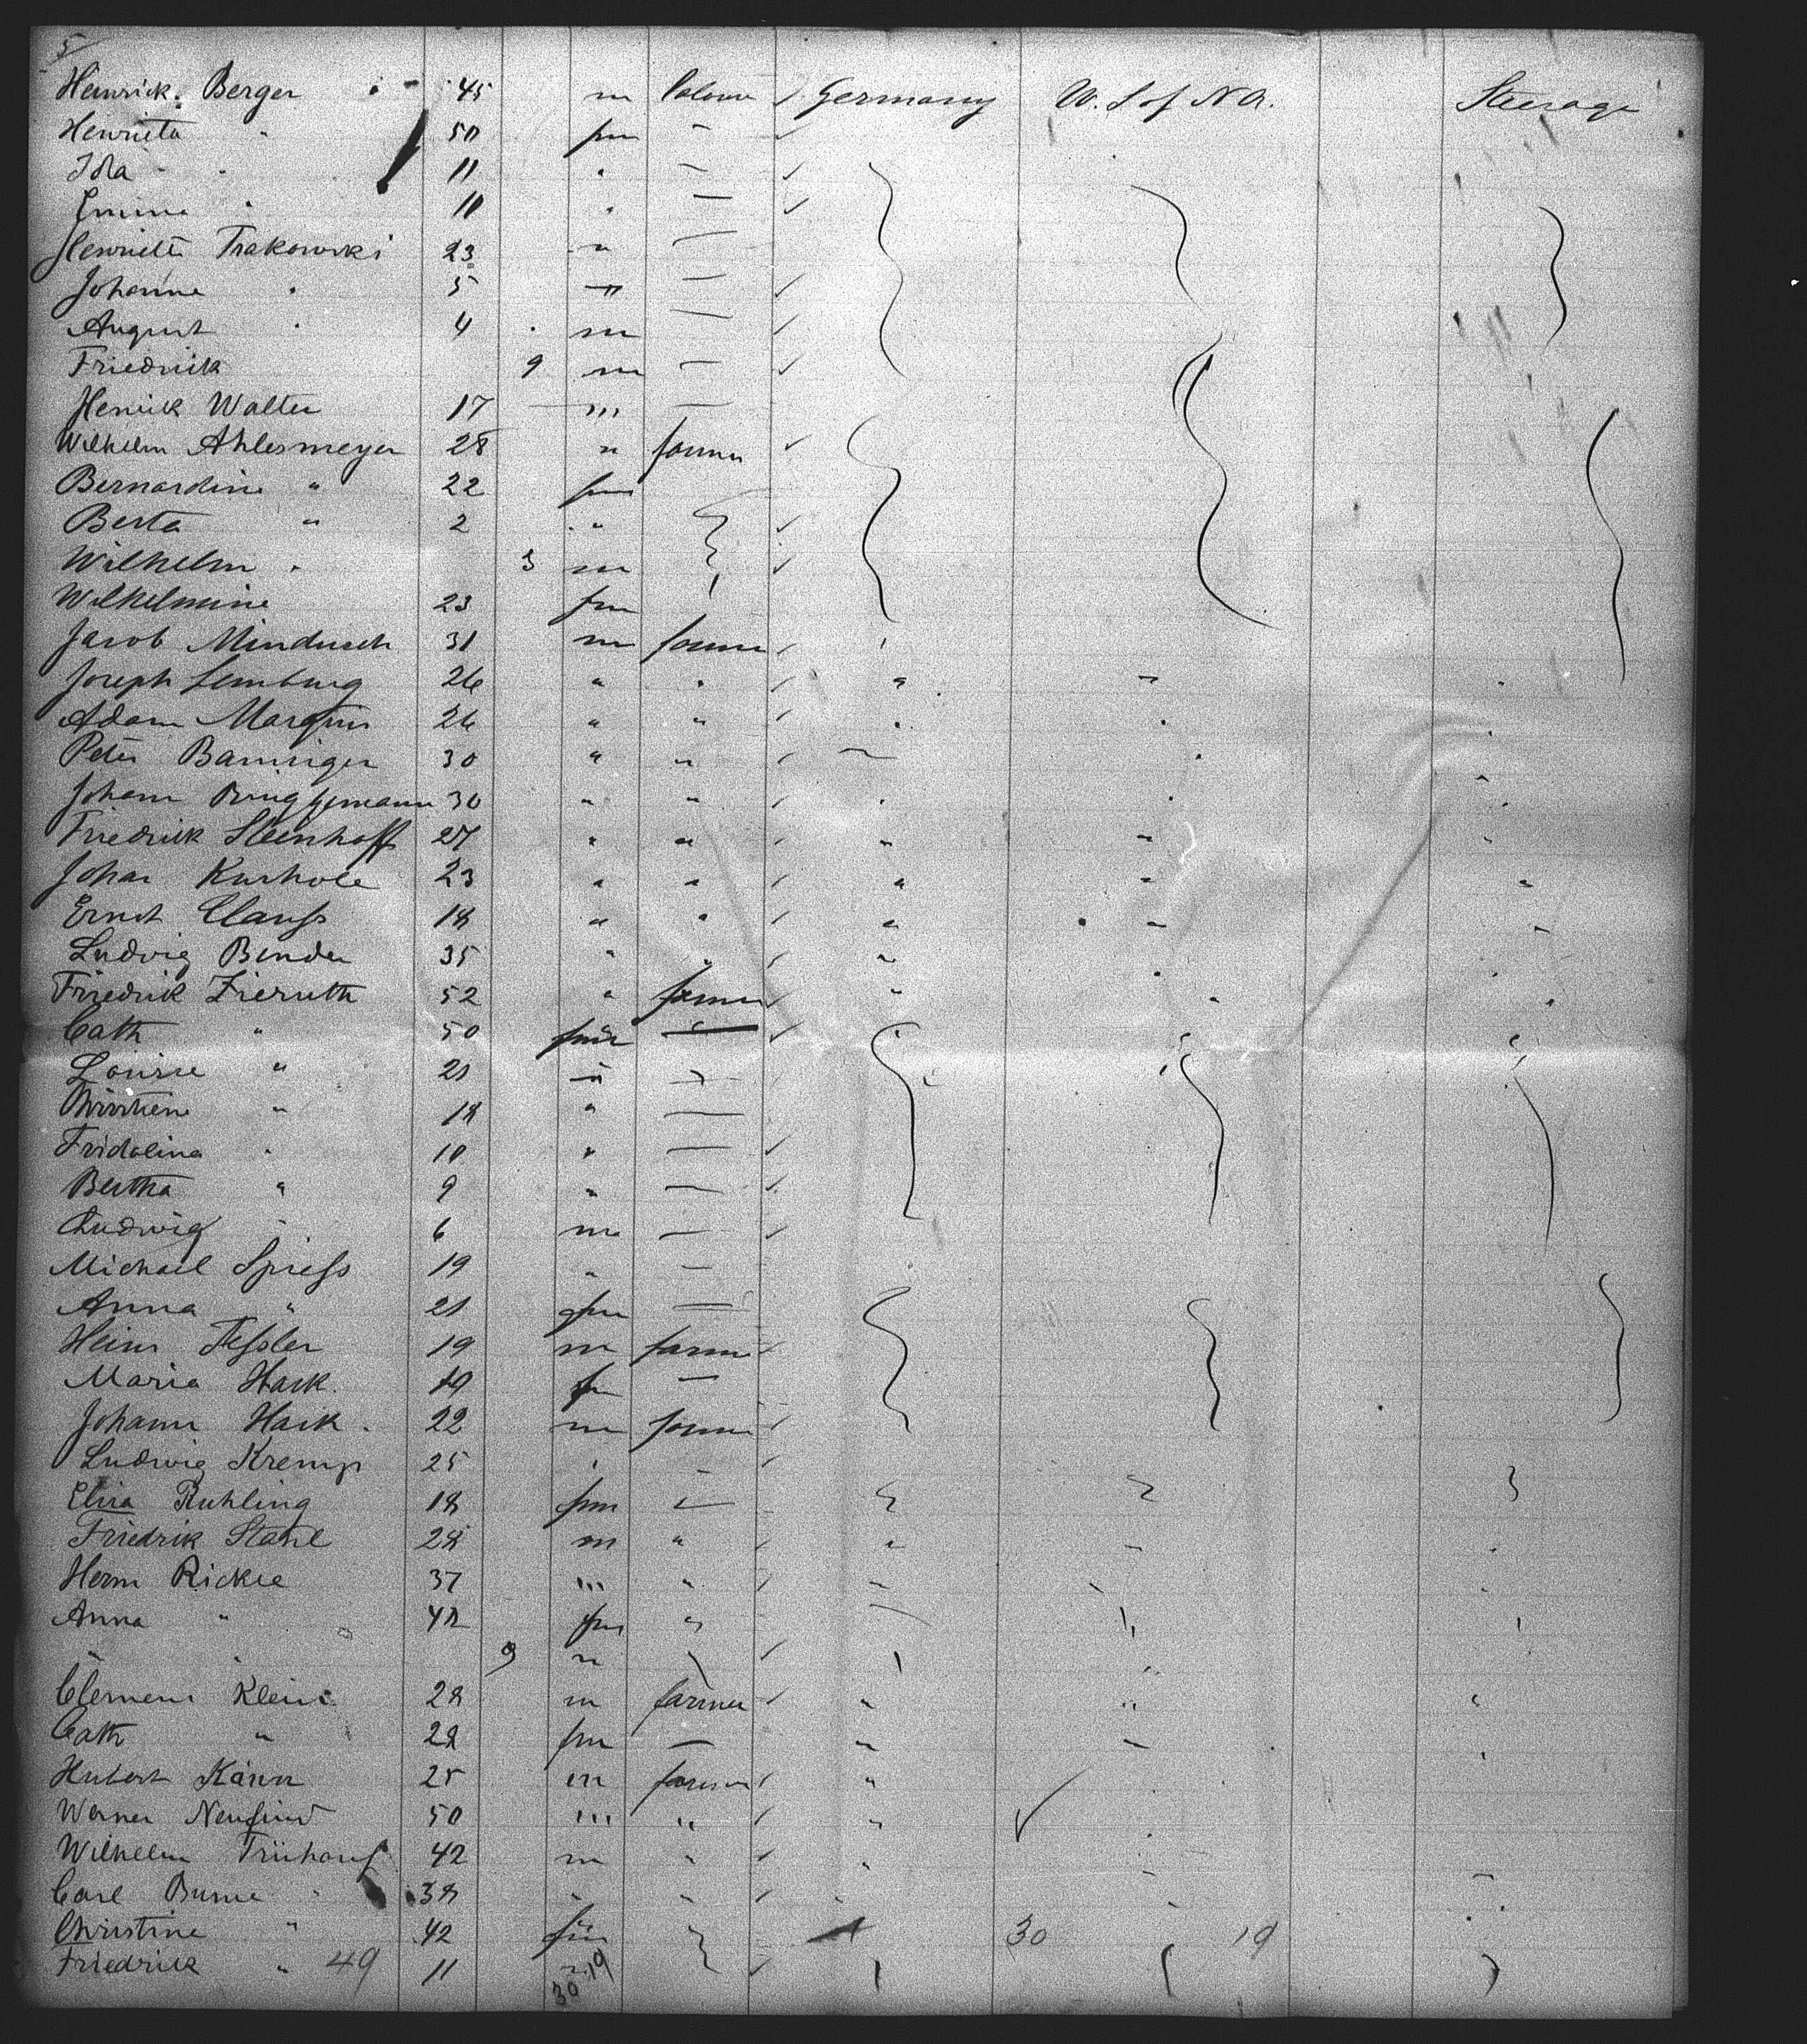 5
Heinrick Berger 45 m Germany U. S of N A. Steerage
Henrieta " 50 fm
Ida " 11 "
" 10 "
Henriette Trakowski 23 "
Johanne " 5 "
August " 4 m
Friedrick 9 m
Henrick Walter 17 m
Wilhelm Ahlesmeyer 28 " farmer
Bernardine " 22 fm
Berta " 2 "
Wilhelm " 3 m
Wilhelmine 23 fm
Jacob 31 m farmer
Joseph Lemburg 26 " "
Adam 26 " "
Peter Baninger 30 " "
Johann 30 " "
Friedrick Steinhoff 27 " "
Johan 23 " "
Ernst Clauss 18 " "
Ludwig Bender 35 " "
Friedrik Zieruth 52 " farmer
Cath " 50 fm
Louise " 21 "
" 18 "
Fridolina " 10 "
Bertha " 9 "
Ludwig " 6 m
Michael Spiess 19 "
Anna " 21 fm
Heinr Tessler 19 m farmer
Maria Hack. 19 fm
Johann Hack. 22 m farmer
Ludwig Kremp 25 "
Elisa Ruhling 18 fm
Friedrik Stahl 28 m "
Herm Rickee 37 m "
Anna " 42 fm "
" " 9 m
Clemens Klein 28 m farmer
Cath " 28 fm
Hubert Kann 25 m farmer
Werner Neufind 50 m "
Wilhelm Frühauf 42 m "
Carl " 38 " "
Christine " 42 fm 30 19
Friedrick " 49 11 " 30 19